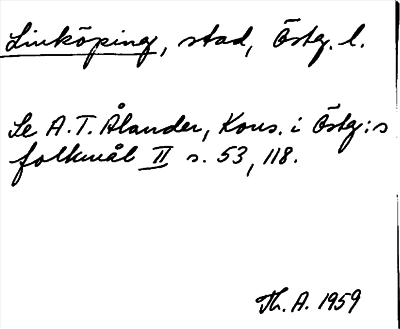 Linköping, stad, Östg. l.
Se A.T. Ålander, Kons. i Östg:s
folkmål II s. 53, 118.
Th. A. 1959